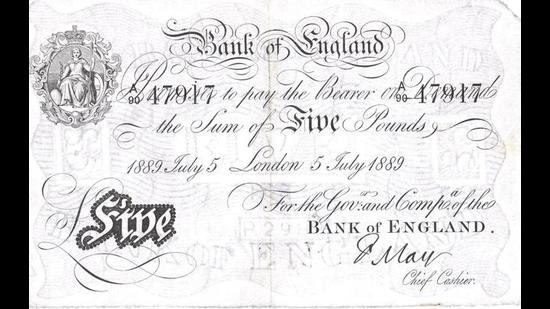 Bank of England
A/90 47917 to pay the Bearer on Demand A/90 47917
the Sum of Five Pounds
1889 July 5 London 5 July 1889
For the Gov.r and Comp.a of the
BANK of ENGLAND.
Five
F May
Chief Cashier.